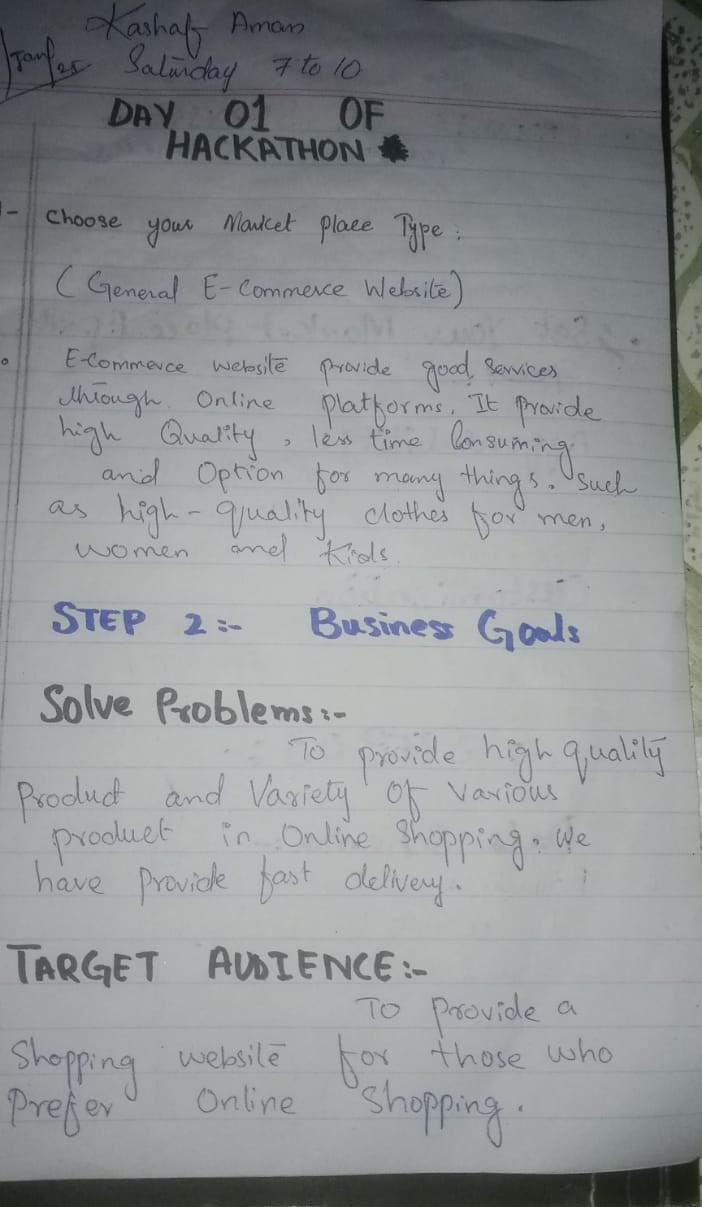 Kashaf Aman
Jan/25 Saturday 7 to 10
DAY 01 OF
HACKATHON
1- Choose your Market place Type:
(General E-Commerce Website)
E-Commerce website provide good, Services
through Online platforms. It provide
high Quality, less time Consuming
and Option for many things. Such
as high-quality clothes for men,
women and Kids.
STEP 2:- Business Goals
Solve Problems:-
To provide high quality
Product and Variety of various
product in Online Shopping. We
have provide fast delivery.
TARGET AUDIENCE:-
To provide a
Shopping website for those who
Prefer Online Shopping.